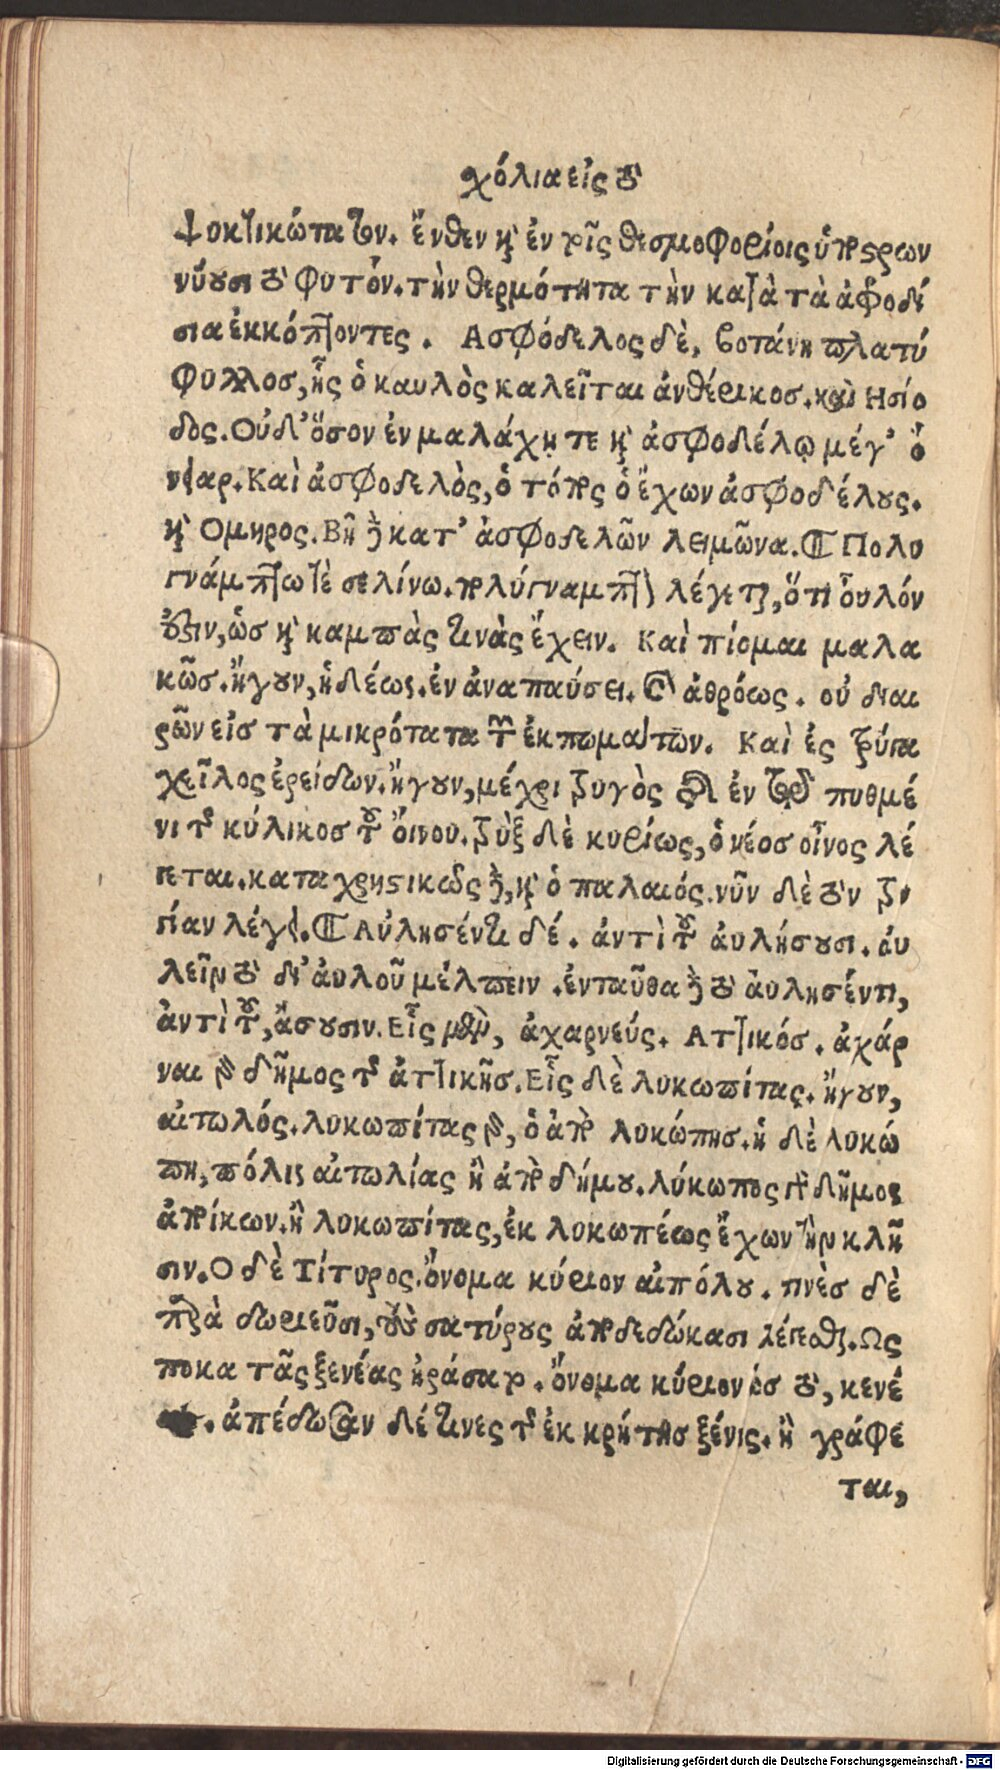 χόλια εἰς τὸ
ψυκτικώτατον. ἔνθεν καὶ ἐν τοῖς θεσμοφορίοις ὑποστρων
νύουσι τὸ φυτὸν. τὴν θερμότητα τὴν κατὰ τὰ ἀφροδί
σια ἐκκόπτοντες. Ασφόδελος δὲ, βοτάνη πλατύ
φυλλοσ, ἧς ὁ καυλὸς καλεῖται ἀνθέρικοσ. καὶ Ησίο
δος. Οὐδ' ὅσον ἐν μαλάχῃ τε καὶ ἀσφοδέλῳ μέγ' ὄ
νειαρ. Καὶ ἀσφοδελὸς, ὁ τόπος ὁ ἔχων ἀσφοδέλους.
καὶ Ομηρος. Βῆ δὲ κατ' ἀσφοδελῶν λειμῶνα. ₵ Πολυ
γνάμπτω τὲ σελίνω. πολύγναμπτον λέγεται, ὅτι οὖλόν
ἐστιν, ὡσ καὶ καμπὰς τινὰς ἔχειν. Καὶ πίομαι μαλα
κῶσ. ἤγουν, ἡδέως. ἐν ἀναπαύσει. οὐκ ἀθρόως. οὐ διαι
ρῶν εἰσ τὰ μικρότατα τῶν ἐκπωμάτων. Καὶ ἐς τρύγα
χεῖλος ἐρείδων. ἤγουν, μέχρι τρυγὸς τῆς ἐν τῷ πυθμέ
νι τῆς κύλικοσ τοῦ ὄινου. τρὺξ δὲ κυρίως, ὁ νέοσ οἶνος λέ
γεται. καταχρηστικῶς δὲ, καὶ ὁ παλαιός. νῦν δὲ τὸν τρυ
γίαν λέγει. ₵ Αὐλησέντι δέ. ἀντὶ τοῦ ἀυλήσουσι. ἀυ
λεῖν τὸ δι' ἀυλοῦ μέλπειν. ἐνταῦθα δὲ τὸ ἀυλησέντι,
ἀντὶ τοῦ, ἄσουσιν. Εἷς μὲν, ἀχαρνεύς. Ατtικόσ. ἀχάρ
ναι γὰρ δῆμος τῆς ἀττικῆσ. Εἷς δὲ λυκωπίτας. ἤγουν,
αἰτωλός. λυκωπίτας γὰρ, ὁ ἀπὸ λυκώπησ. ἡ δὲ λυκώ
πη, πόλις αἰτωλίας ἢ ἀπὸ δήμου. λύκωπος γὰρ δῆμος
ἀποίκων. ἢ λυκωπίτας, ἐκ λυκωπέως ἔχων τὴν κλῆ
σιν. Ο δὲ Τίτυρος. ὄνομα κύριον αἰπόλου. τινὲσ δὲ
παρὰ δωριεῦσι, τοὺς σατύρους ἀποδεδώκασι λέγεσθαι. Ως
ποκα τᾶς ξενέας ἠράσατο. ὄνομα κύριον ὡσ τὸ, κενέ
ας. ἀπέδωσαν δέ τινες τῆς ἐκ κρήτησ ξένης. ἢ γράφε
ται,
Digitalisierung gefördert durch die Deutsche Forschungsgemeinschaft - DFG